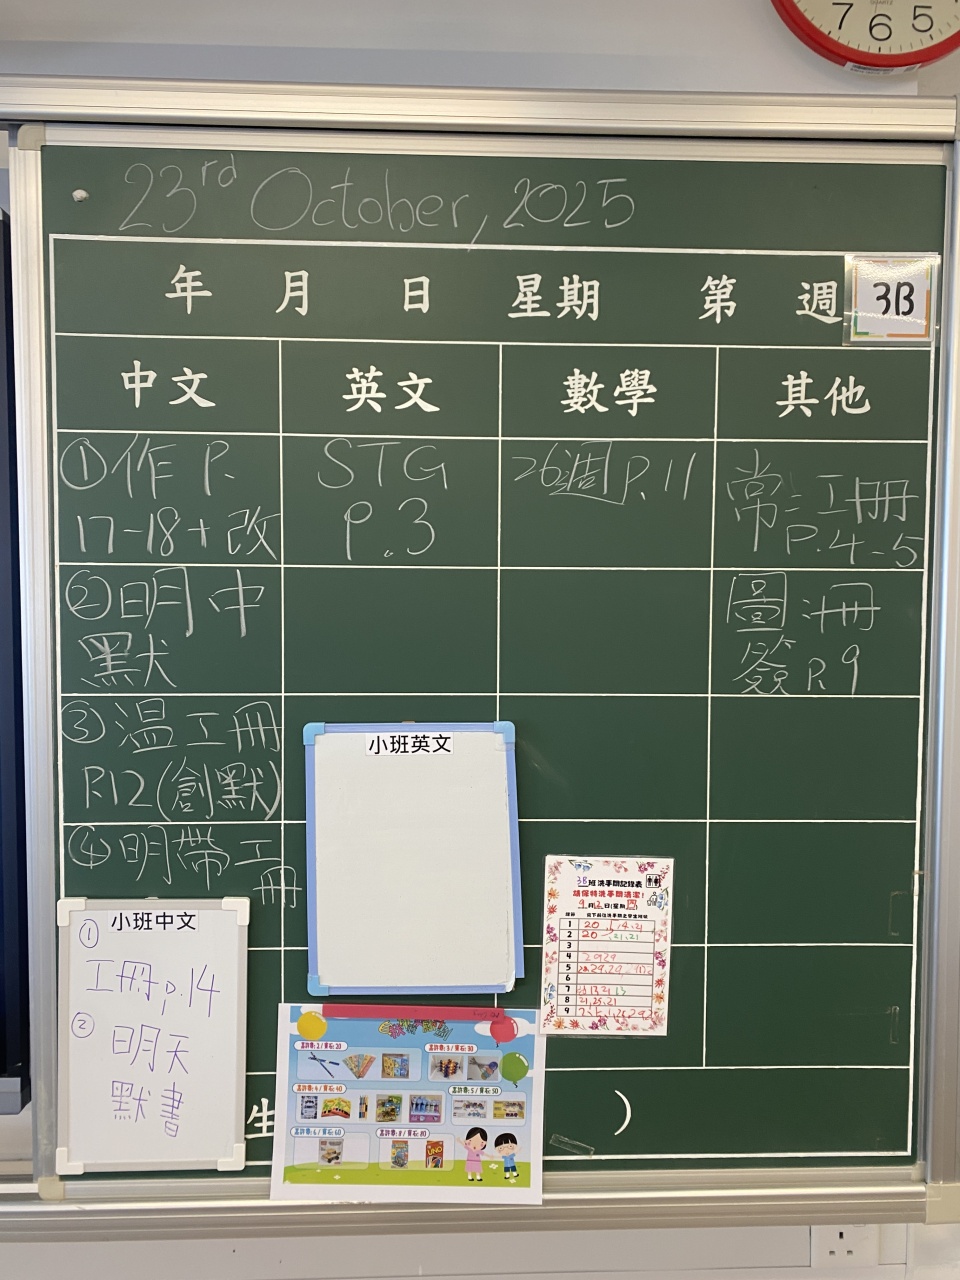 7 6 5
23rd October, 2025
年 月 日 星期 第 週
3B
中文 英文 數學 其他
①作 P.
17-18+改
STG
P.3
26週 P.11
常=工冊
P.4-5
②明中
默
圖冊
簽 P.9
③溫工冊
P.12(創默)
④明帶工
冊
小班英文
小班中文
①
工冊 p.14
②
明天
默書
3B班洗手間記錄表
請保持洗手間清潔!
9月2日(星期四)
1 20
2 20
3
4 2029
5
6
7
8 21,25,21
9
生 )
UNO